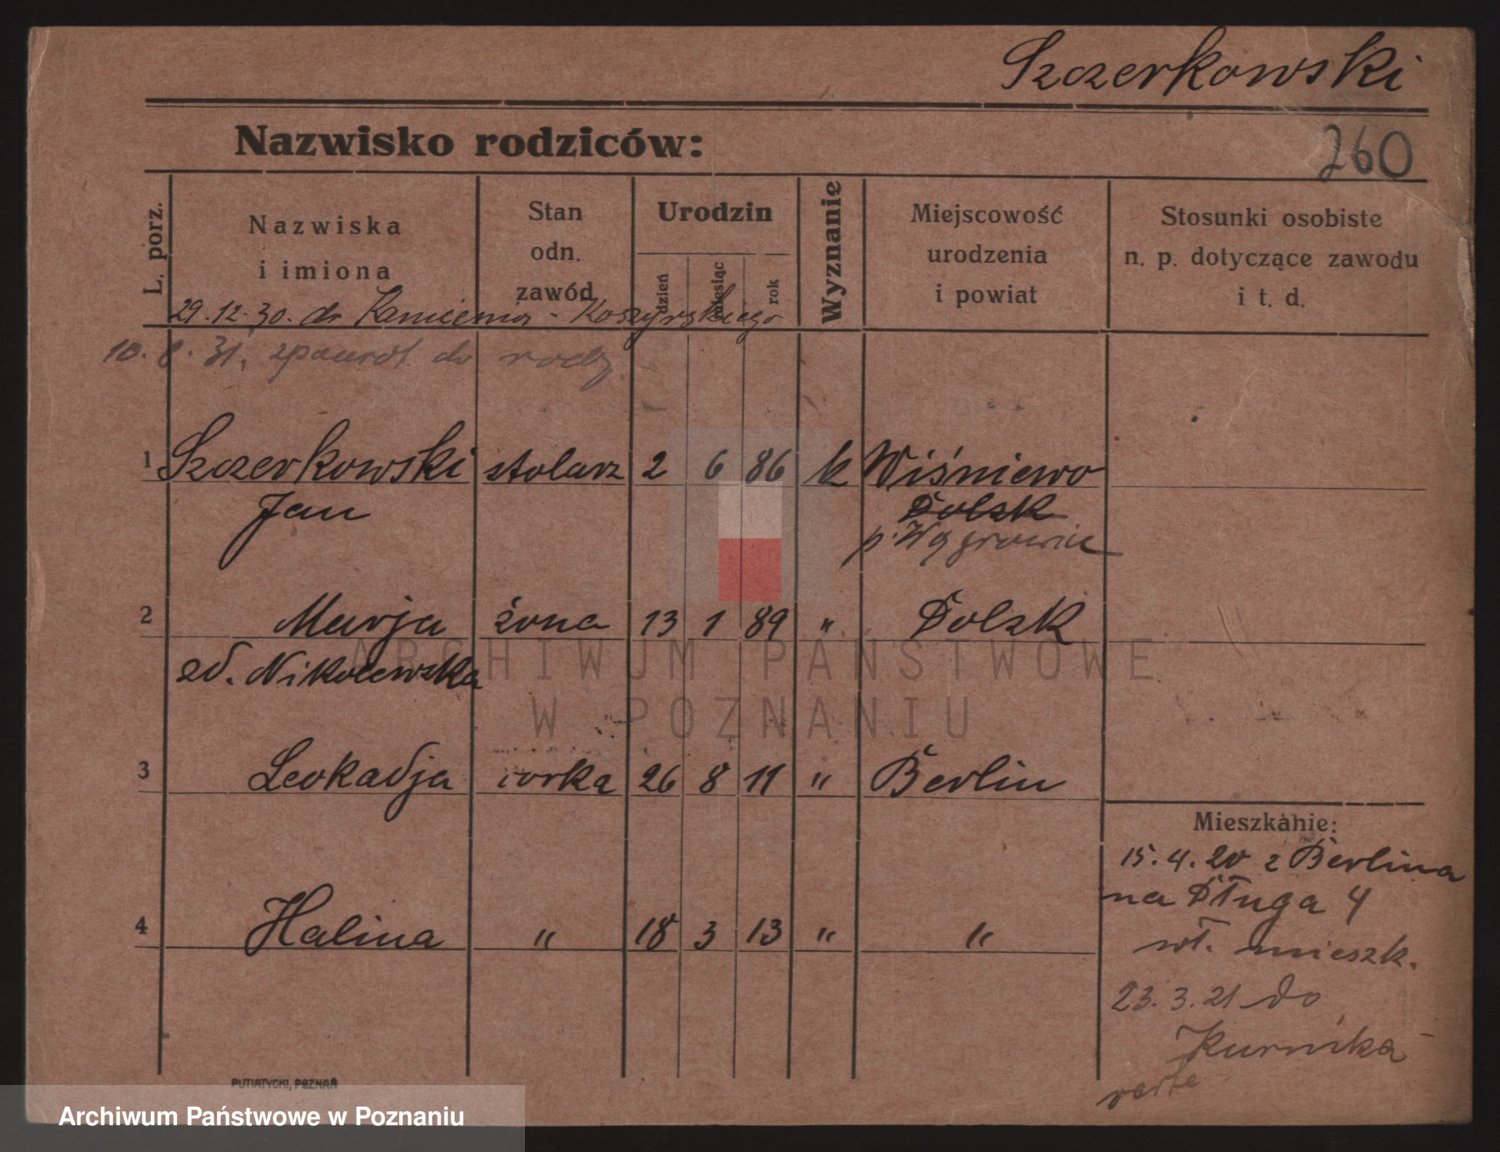 Szczerkowski
Nazwisko rodziców:
260
L. porz.
Nazwiska i imiona
Stan odn. zawód
Urodzin
dzień
miesiąc
rok
Wyznanie
Miejscowość urodzenia i powiat
Stosunki osobiste n. p. dotyczące zawodu i t. d.
29.12.30. do Kamienia - Koszyrskiego
10. 8. 31,
do
1 Szczerkowski stolarz 2 6 86 k Wiśniewo
Jan Dolsk
p. Wągrowiec
2 Marja żona 13 1 89 " Dolsk
zd. Nikolewska
3 Leokadja córka 26 8 11 " Berlin
Mieszkanie:
15.4.20 z Berlina
na Długa 4
4 Halina " 18 3 13 " "
wł. mieszk.
23.3.21 do
Kurnika
verte
PUTIATYCKI, POZNAŃ
ARCHIWUM PAŃSTWOWE
W POZNANIU
Archiwum Państwowe w Poznaniu